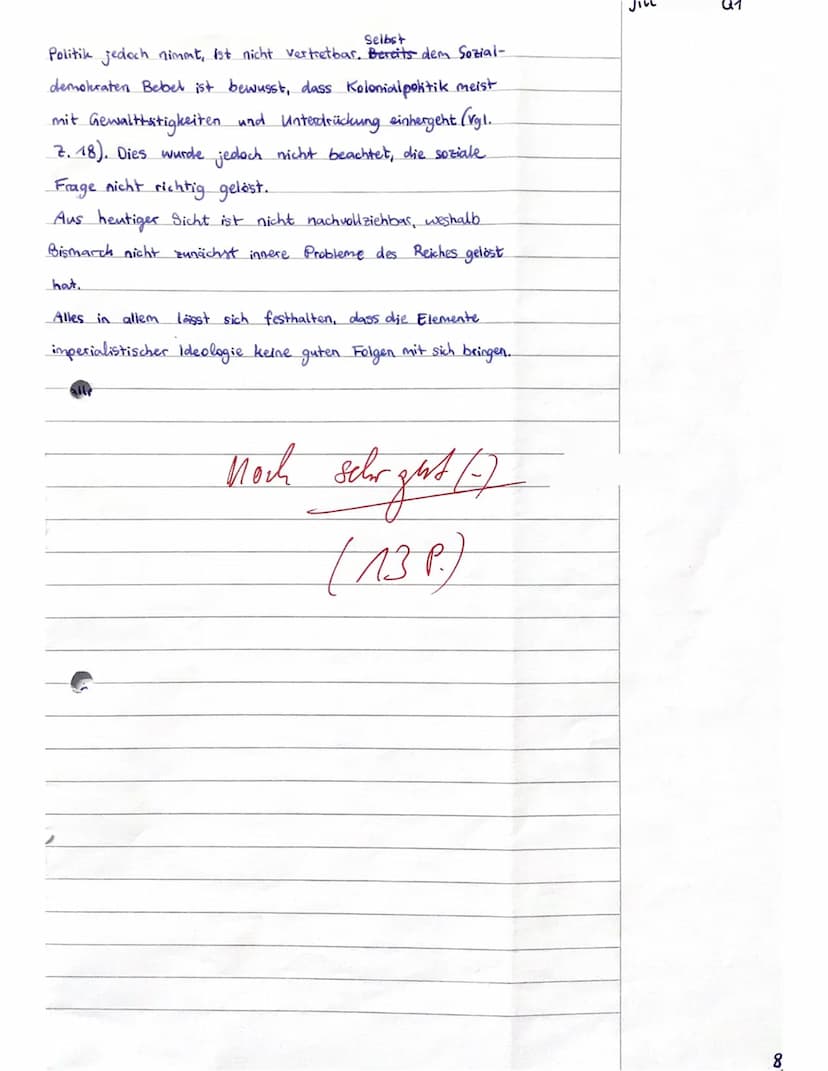 Jill Q1
Selbst
Politik jedoch nimmt, ist nicht vertretbar. Bereits dem Sozial-
demokraten Bebel ist bewusst, dass Kolonialpolitik meist
mit Gewalttätigkeiten und Unterdrückung einhergeht (Vgl.
Z. 18). Dies wurde jedoch nicht beachtet, die soziale
Frage nicht richtig gelöst.
Aus heutiger Sicht ist nicht nachvollziehbar, weshalb
Bismarck nicht zunächst innere Probleme des Reiches gelöst
hat.
Alles in allem lässt sich festhalten, dass die Elemente
imperialistischer Ideologie keine guten Folgen mit sich bringen.
Noch sehr gut (-)
(13 P.)
8